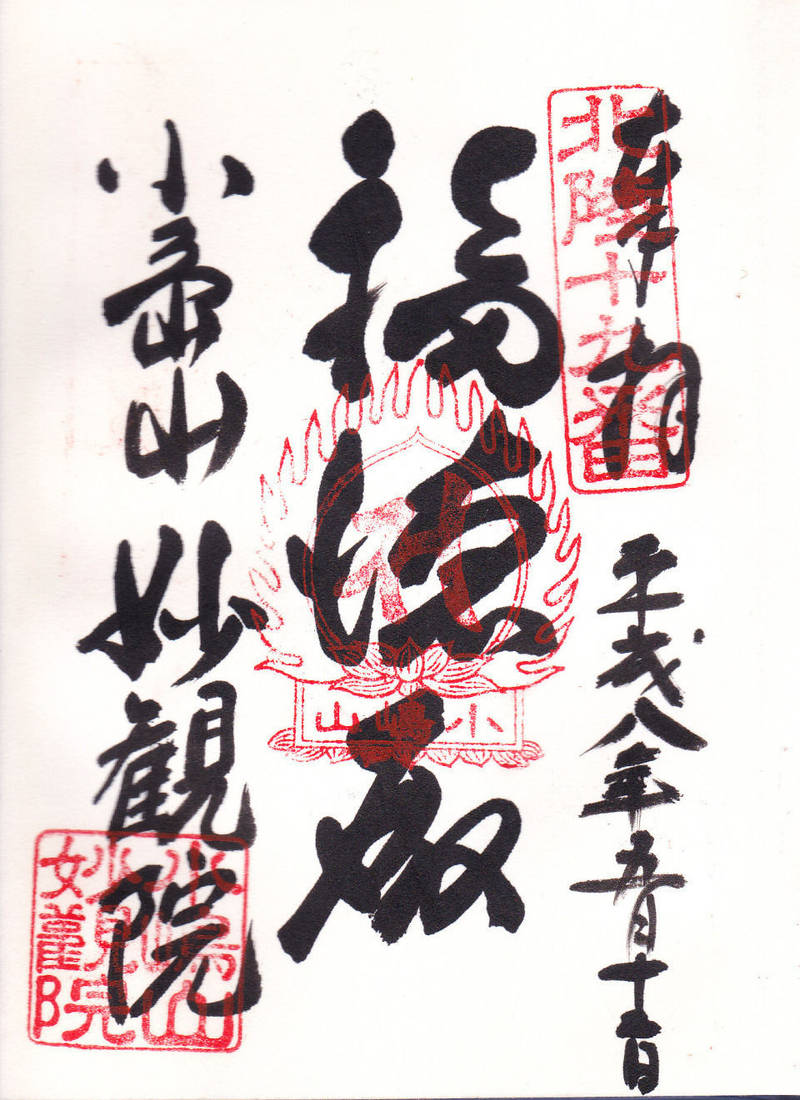 奉拝
北陸十九番
平成八年五月十五日
福徳殿
小嶋山
小嶌山 妙観院
小嶋山
妙觀院